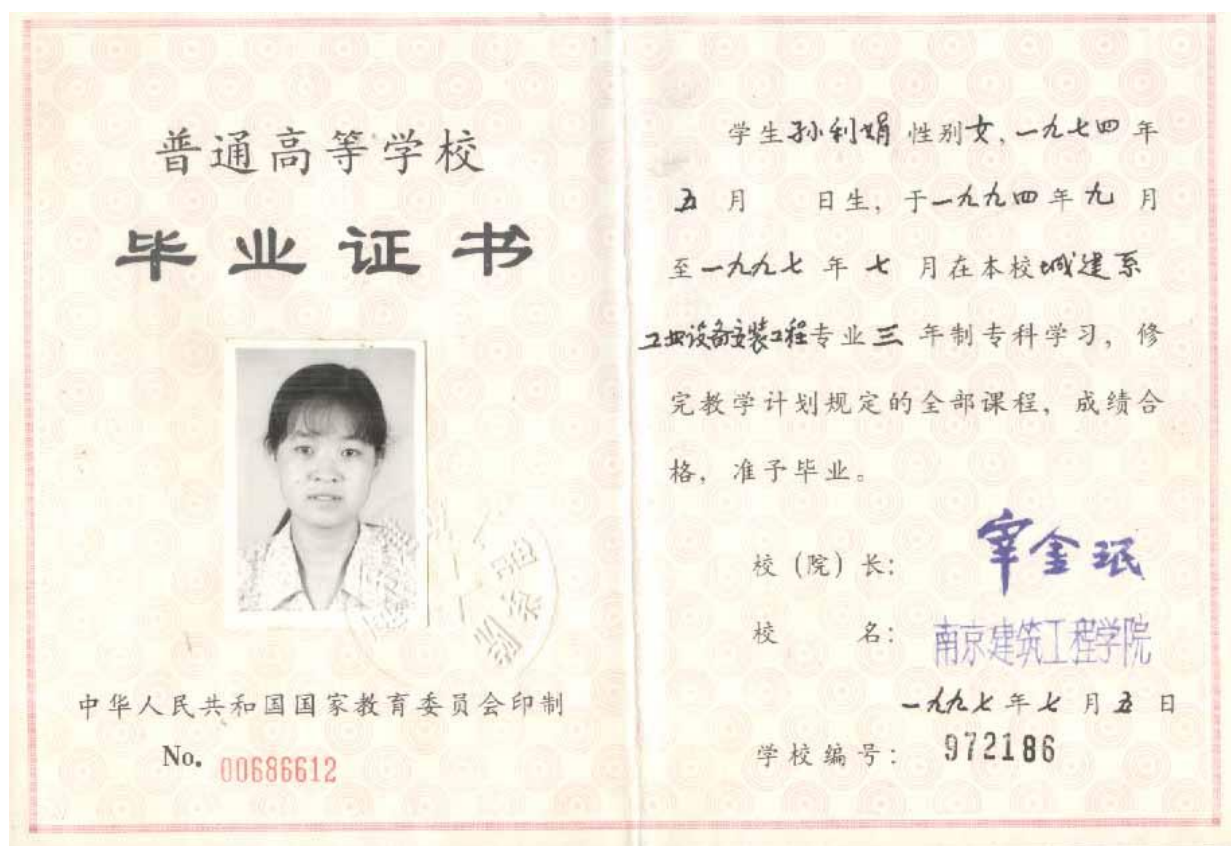 普通高等学校
毕业证书
中华人民共和国国家教育委员会印制
No. 00686612
学生孙利娟性别女,一九七四年
五月 日生,于一九九四年九月
至一九九七年七月在本校城建系
工业设备安装工程专业三年制专科学习,修
完教学计划规定的全部课程,成绩合
格,准予毕业。
校(院)长:宰金珉
校 名:南京建筑工程学院
一九九七年七月五日
学校编号:972186